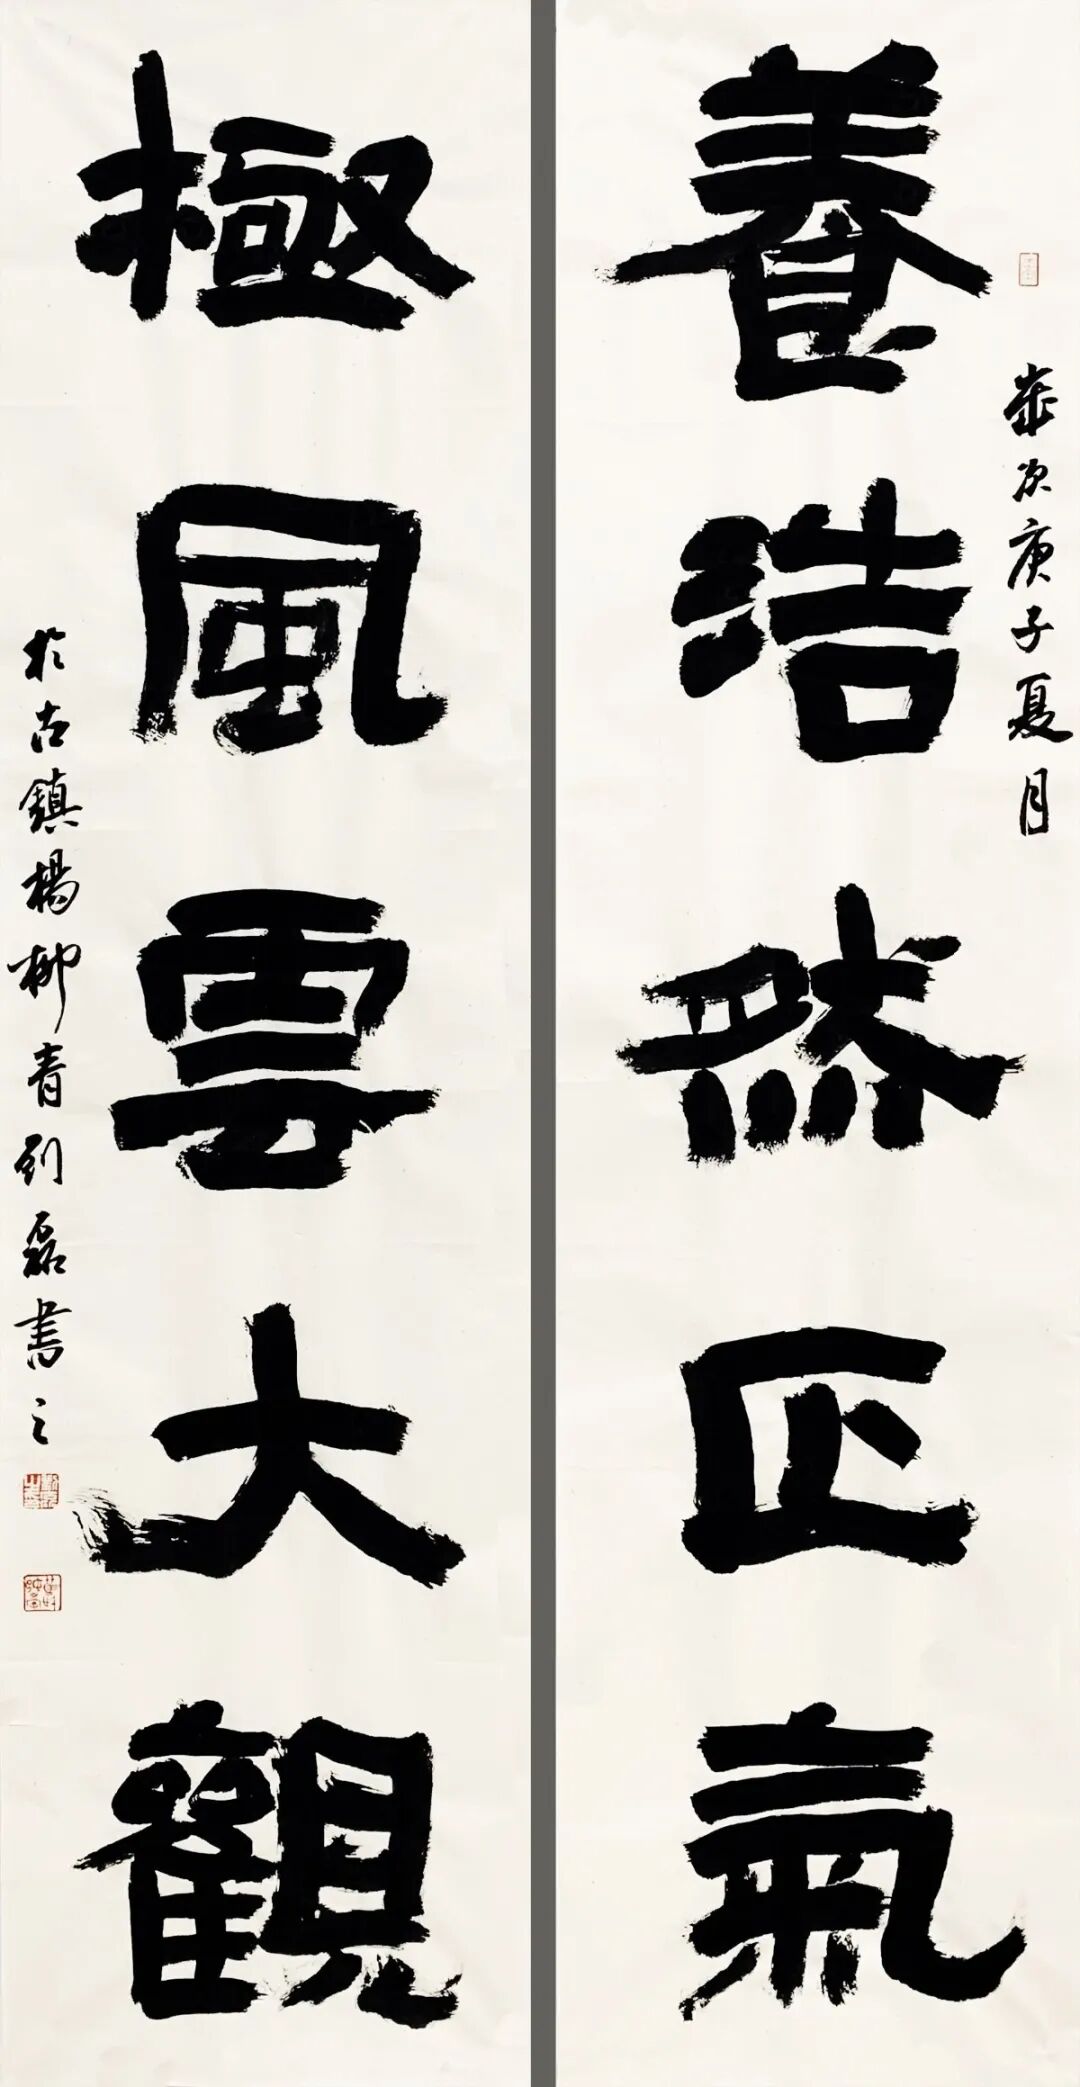 養浩然正氣
歲次庚子夏月
極風雲大觀
於古鎮楊柳青刘磊書之